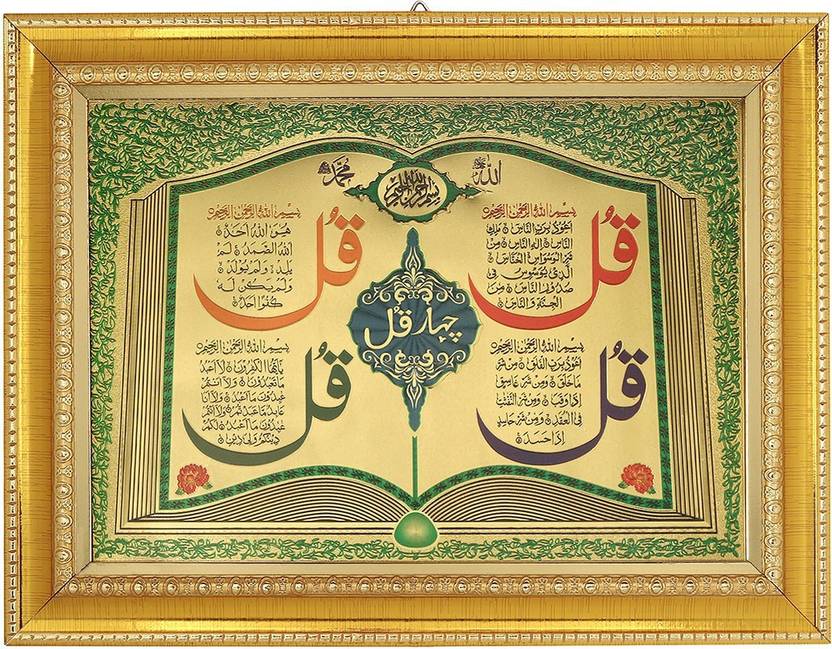 الله
بسم الله الرحمن الرحيم
محمد
بسم الله الرحمن الرحيم
قل
اعوذ برب الناس ۝ ملك
الناس ۝ اله الناس ۝ من
شر الوسواس الخناس ۝
الذي يوسوس في
صدور الناس ۝ من
الجنة والناس ۝
بسم الله الرحمن الرحيم
قل
هو الله احد ۝
الله الصمد ۝ لم
يلد ۝ ولم يولد ۝
ولم يكن له
كفوا احد ۝
چہار قل
بسم الله الرحمن الرحيم
قل
اعوذ برب الفلق ۝ من شر
ما خلق ۝ ومن شر غاسق
اذا وقب ۝ ومن شر النفثت
في العقد ۝ ومن شر حاسد
اذا حسد ۝
بسم الله الرحمن الرحيم
قل
يايها الكفرون ۝ لا اعبد
ما تعبدون ۝ ولا انتم
عبدون ما اعبد ۝ ولا انا
عابد ما عبدتم ۝ ولا انتم
عبدون ما اعبد ۝ لكم
دينكم ولي دين ۝